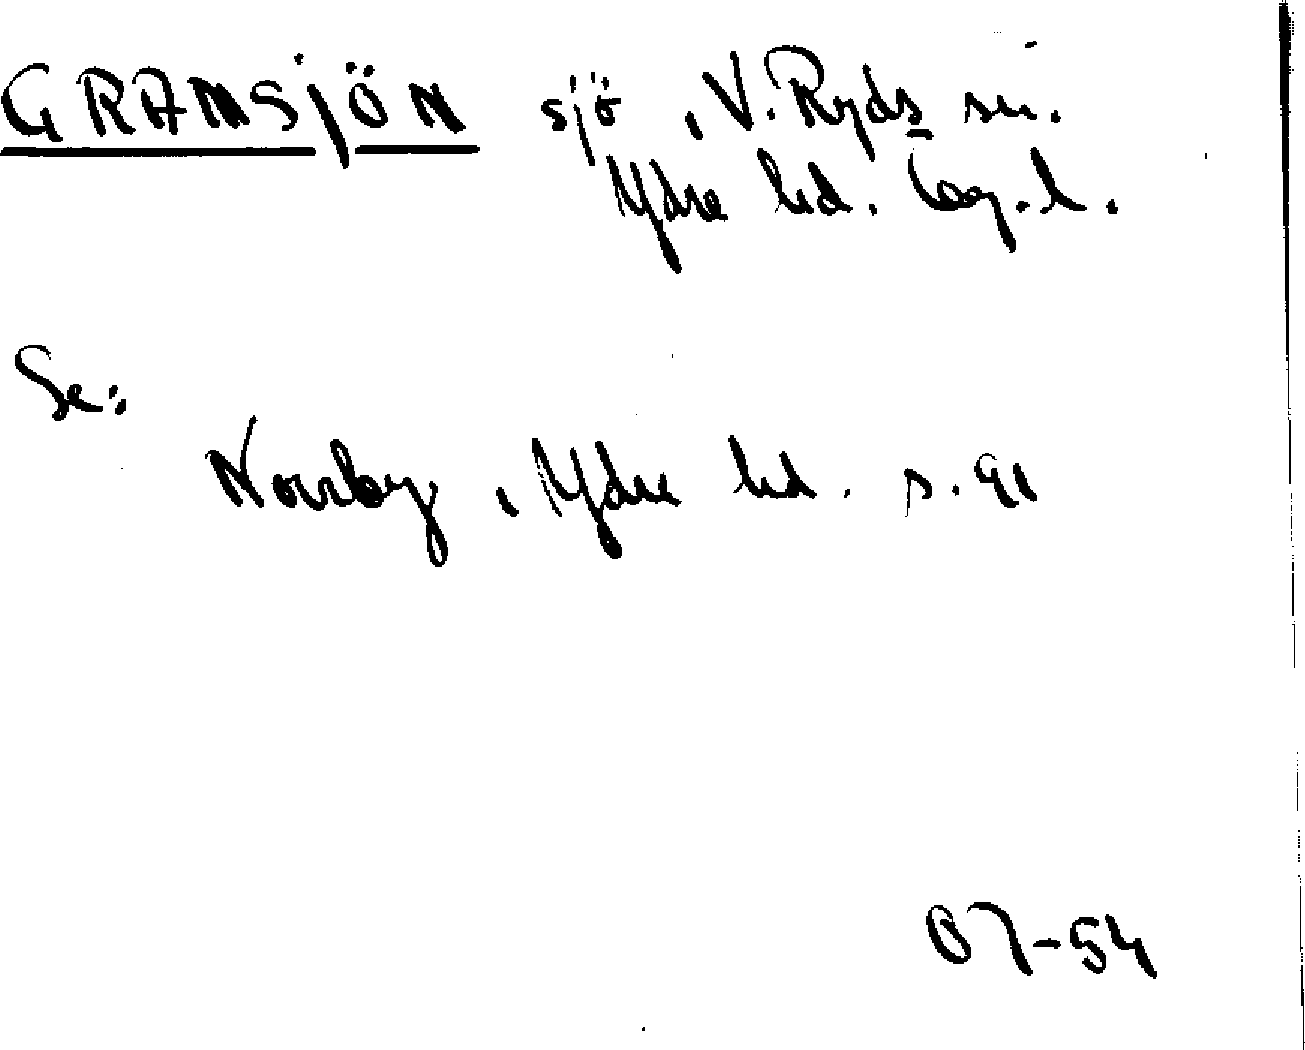 GRAMSJÖN sjö, V. Ryds sn.
Ydre hd. Ög.l.
Se:
Norrby, Ydre hd. s. 91
07-54